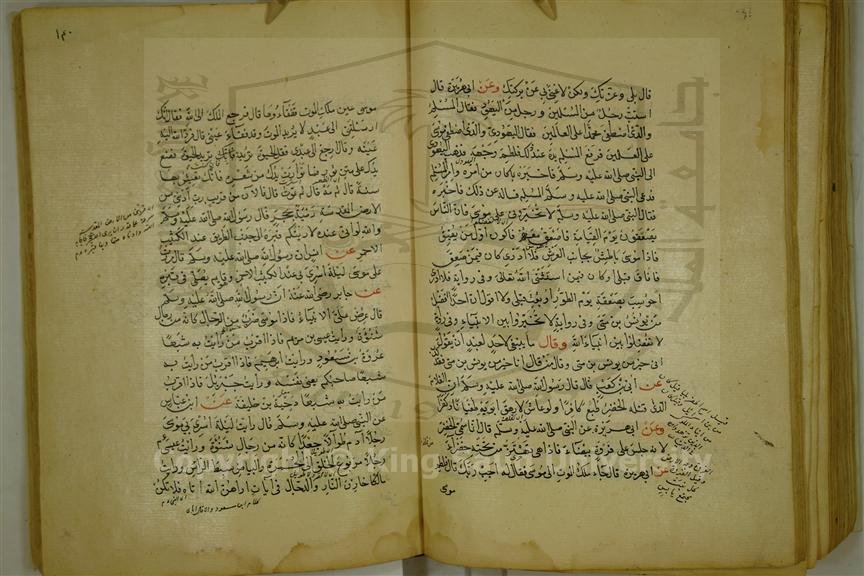 قال بلى وعزتك ولكن لا غنى بي عن بركتك وعن ابي هريرة قال
استب رجل من المسلمين ورجل من اليهود فقال المسلم
والذي اصطفى محمدا على العالمين فقال اليهودي والذي اصطفى موسى
على العلمين فرفع المسلم يده عند ذلك فلطم وجه اليهودي فذهب اليهودي
الى النبي صلى الله عليه وسلم فاخبره بما كان من امره وامر المسلم
فدعى النبي صلى الله عليه وسلم المسلم فساله عن ذلك فاخبره
فقال النبي صلى الله عليه وسلم لا تخيروني على موسى فان الناس
يصعقون يوم القيامة فاصعق معهم فاكون اول من يفيق
فاذا موسى باطش بجانب العرش فلا ادري كان فيمن صعق
فافاق قبلي او كان فيمن استثنى الله تعالى وفي رواية فلا ادري
احوسب بصعقة يوم الطور او بعث قبلي ولا اقول ان احدا افضل
من يونس بن متى وفي رواية لا تخيروا بين الانبياء وفي رواية
لا تفضلوا بين انبياء الله وقال ما ينبغي لاحد لعبد ان يقول
اني خير من يونس بن متى وقال من قال انا خير من يونس بن متى فقد
عن ابي بن كعب قال قال رسول الله صلى الله عليه وسلم ان الغلام
الذي قتله الخضر طبع كافرا ولو عاش لارهق ابويه طغيانا وكفرا
وعن ابي هريرة عن النبي صلى الله عليه وسلم قال انما سمي الخضر
لانه جلس على فروة بيضاء فاذا هي تهتز من تحته خضراء
عن ابي هريرة قال جاء ملك الموت الى موسى فقال له اجب ربك قال فلطم
موسى
١٤٠
موسى عين ملك الموت ففقأها قال فرجع الملك الى الله فقال انك
ارسلتني الى عبد لا يريد الموت وقد فقأ عيني قال فرد الله اليه
عينه وقال ارجع الى عبدي فقل الحيوة تريد فان كنت تريد الحيوة فضع
يدك على متن ثور فما توارت يدك من شعره فانك تعيش بها
سنة قال ثم مه قال ثم تموت قال فالآن من قريب رب ادنني من
الارض المقدسة رمية بحجر قال رسول الله صلى الله عليه وسلم
والله لو اني عنده لاريتكم قبره الى جنب الطريق عند الكثيب
الاحمر عن انس ان رسول الله صلى الله عليه وسلم قال مررت
على موسى ليلة اسري بي عند الكثيب الاحمر وهو قائم يصلي في قبره
عن جابر رضي الله عنه ان رسول الله صلى الله عليه وسلم
قال عرض علي الانبياء فاذا موسى ضرب من الرجال كانه من رجال
شنوءة ورايت عيسى بن مريم فاذا اقرب من رايت به شبها
عروة بن مسعود ورايت ابرهيم فاذا اقرب من رايت به
شبها صاحبكم يعني نفسه ورايت جبريل فاذا اقرب
من رايت به شبها دحية بن خليفة عن ابن عباس
عن النبي صلى الله عليه وسلم قال رايت ليلة اسري بي موسى
رجلا آدم طوالا جعدا كانه من رجال شنوءة ورايت عيسى
رجلا مربوع الخلق الى الحمرة والبياض سبط الراس ورايت
مالكا خازن النار والدجال في آيات اراهن الله اياه فلا تكن
Copyright © King Saud University